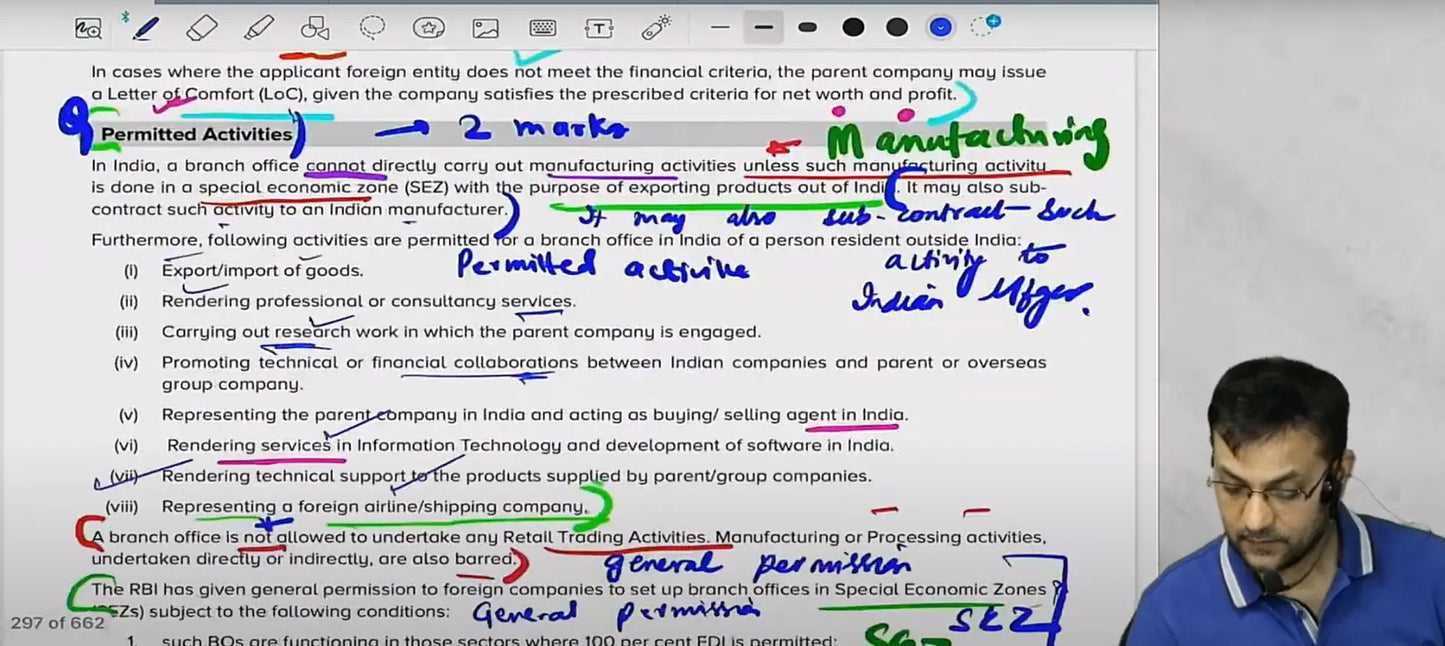 In cases where the applicant foreign entity does not meet the financial criteria, the parent company may issue
a Letter of Comfort (LoC), given the company satisfies the prescribed criteria for net worth and profit.
Q Permitted Activities → 2 marks Manufacturing
In India, a branch office cannot directly carry out manufacturing activities unless such manufacturing activity
is done in a special economic zone (SEZ) with the purpose of exporting products out of India. It may also sub-
contract such activity to an Indian manufacturer.
It may also sub-contract such
activity to
Indian Mfger.
Furthermore, following activities are permitted for a branch office in India of a person resident outside India:
(i) Export/import of goods.
Permitted activities
(ii) Rendering professional or consultancy services.
(iii) Carrying out research work in which the parent company is engaged.
(iv) Promoting technical or financial collaborations between Indian companies and parent or overseas
group company.
(v) Representing the parent company in India and acting as buying/ selling agent in India.
(vi) Rendering services in Information Technology and development of software in India.
(vii) Rendering technical support to the products supplied by parent/group companies.
(viii) Representing a foreign airline/shipping company.
A branch office is not allowed to undertake any Retail Trading Activities. Manufacturing or Processing activities,
undertaken directly or indirectly, are also barred.
general permission
The RBI has given general permission to foreign companies to set up branch offices in Special Economic Zones
(SEZs) subject to the following conditions:
General permission
SEZ
297 of 662
1. such BOs are functioning in those sectors where 100 per cent FDI is permitted;